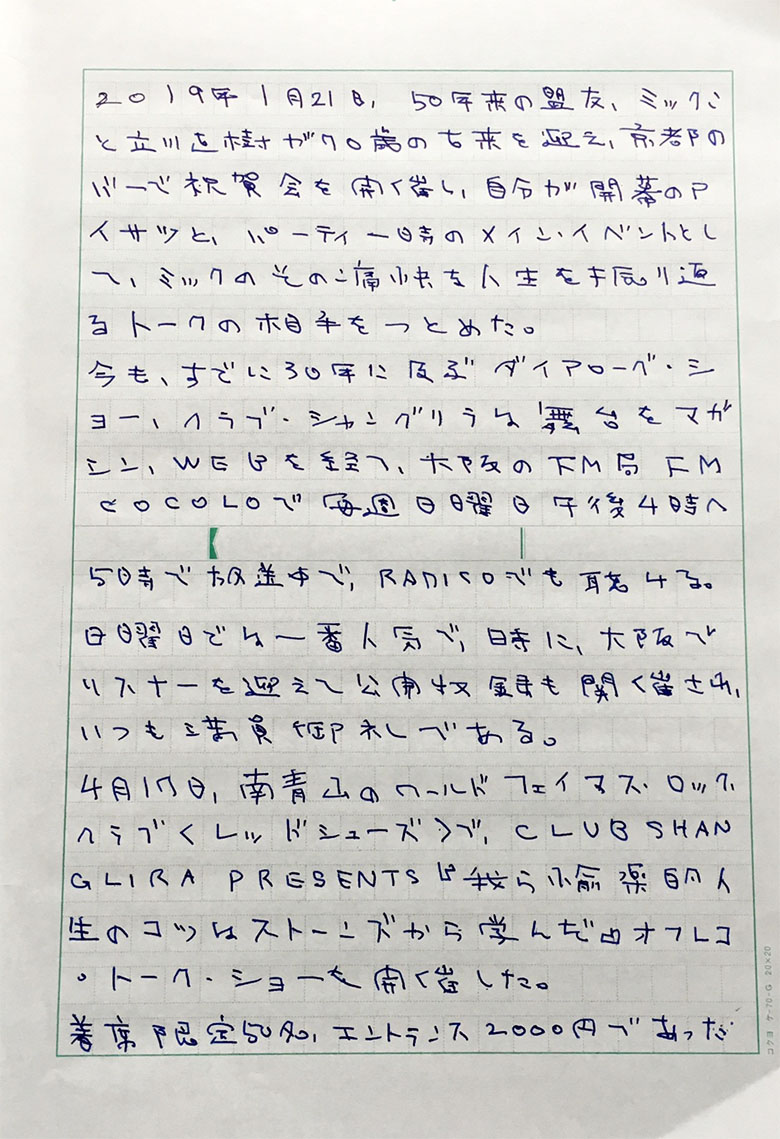 2019年1月21日、50年来の盟友、ミックこ
と立川直樹が70歳の古来を迎え、京都の
バーで祝賀会を開く催し、自分が開幕のア
イサツと、パーティー時のメイン・イベントとし
て、ミックのその痛快な人生を振り返
るトークの相手をつとめた。
今も、すでに30年に及ぶダイアローグ・シ
ョー、クラブ・シャングリラは舞台をマガ
ジン、WEBを経て、大阪のFM局 FM
COCOLOで毎週日曜日午後4時〜
5時で放送中で、RADIKOでも聴ける。
日曜日では一番人気で、時に、大阪で
リスナーを迎えて公開収録も開く催され、
いつも満員御礼である。
4月17日、南青山のワールドフェイマス・ロック
クラブ<レッドシューズ>で、CLUB SHAN
GLIRA PRESENTS『我ら愉楽的人
生のコツはストーンズから学んだ』オフレコ
・トーク・ショーを開く催した。
着席限定50名、エントランス2000円であっだ
コクヨ ケ-70-G 20×20